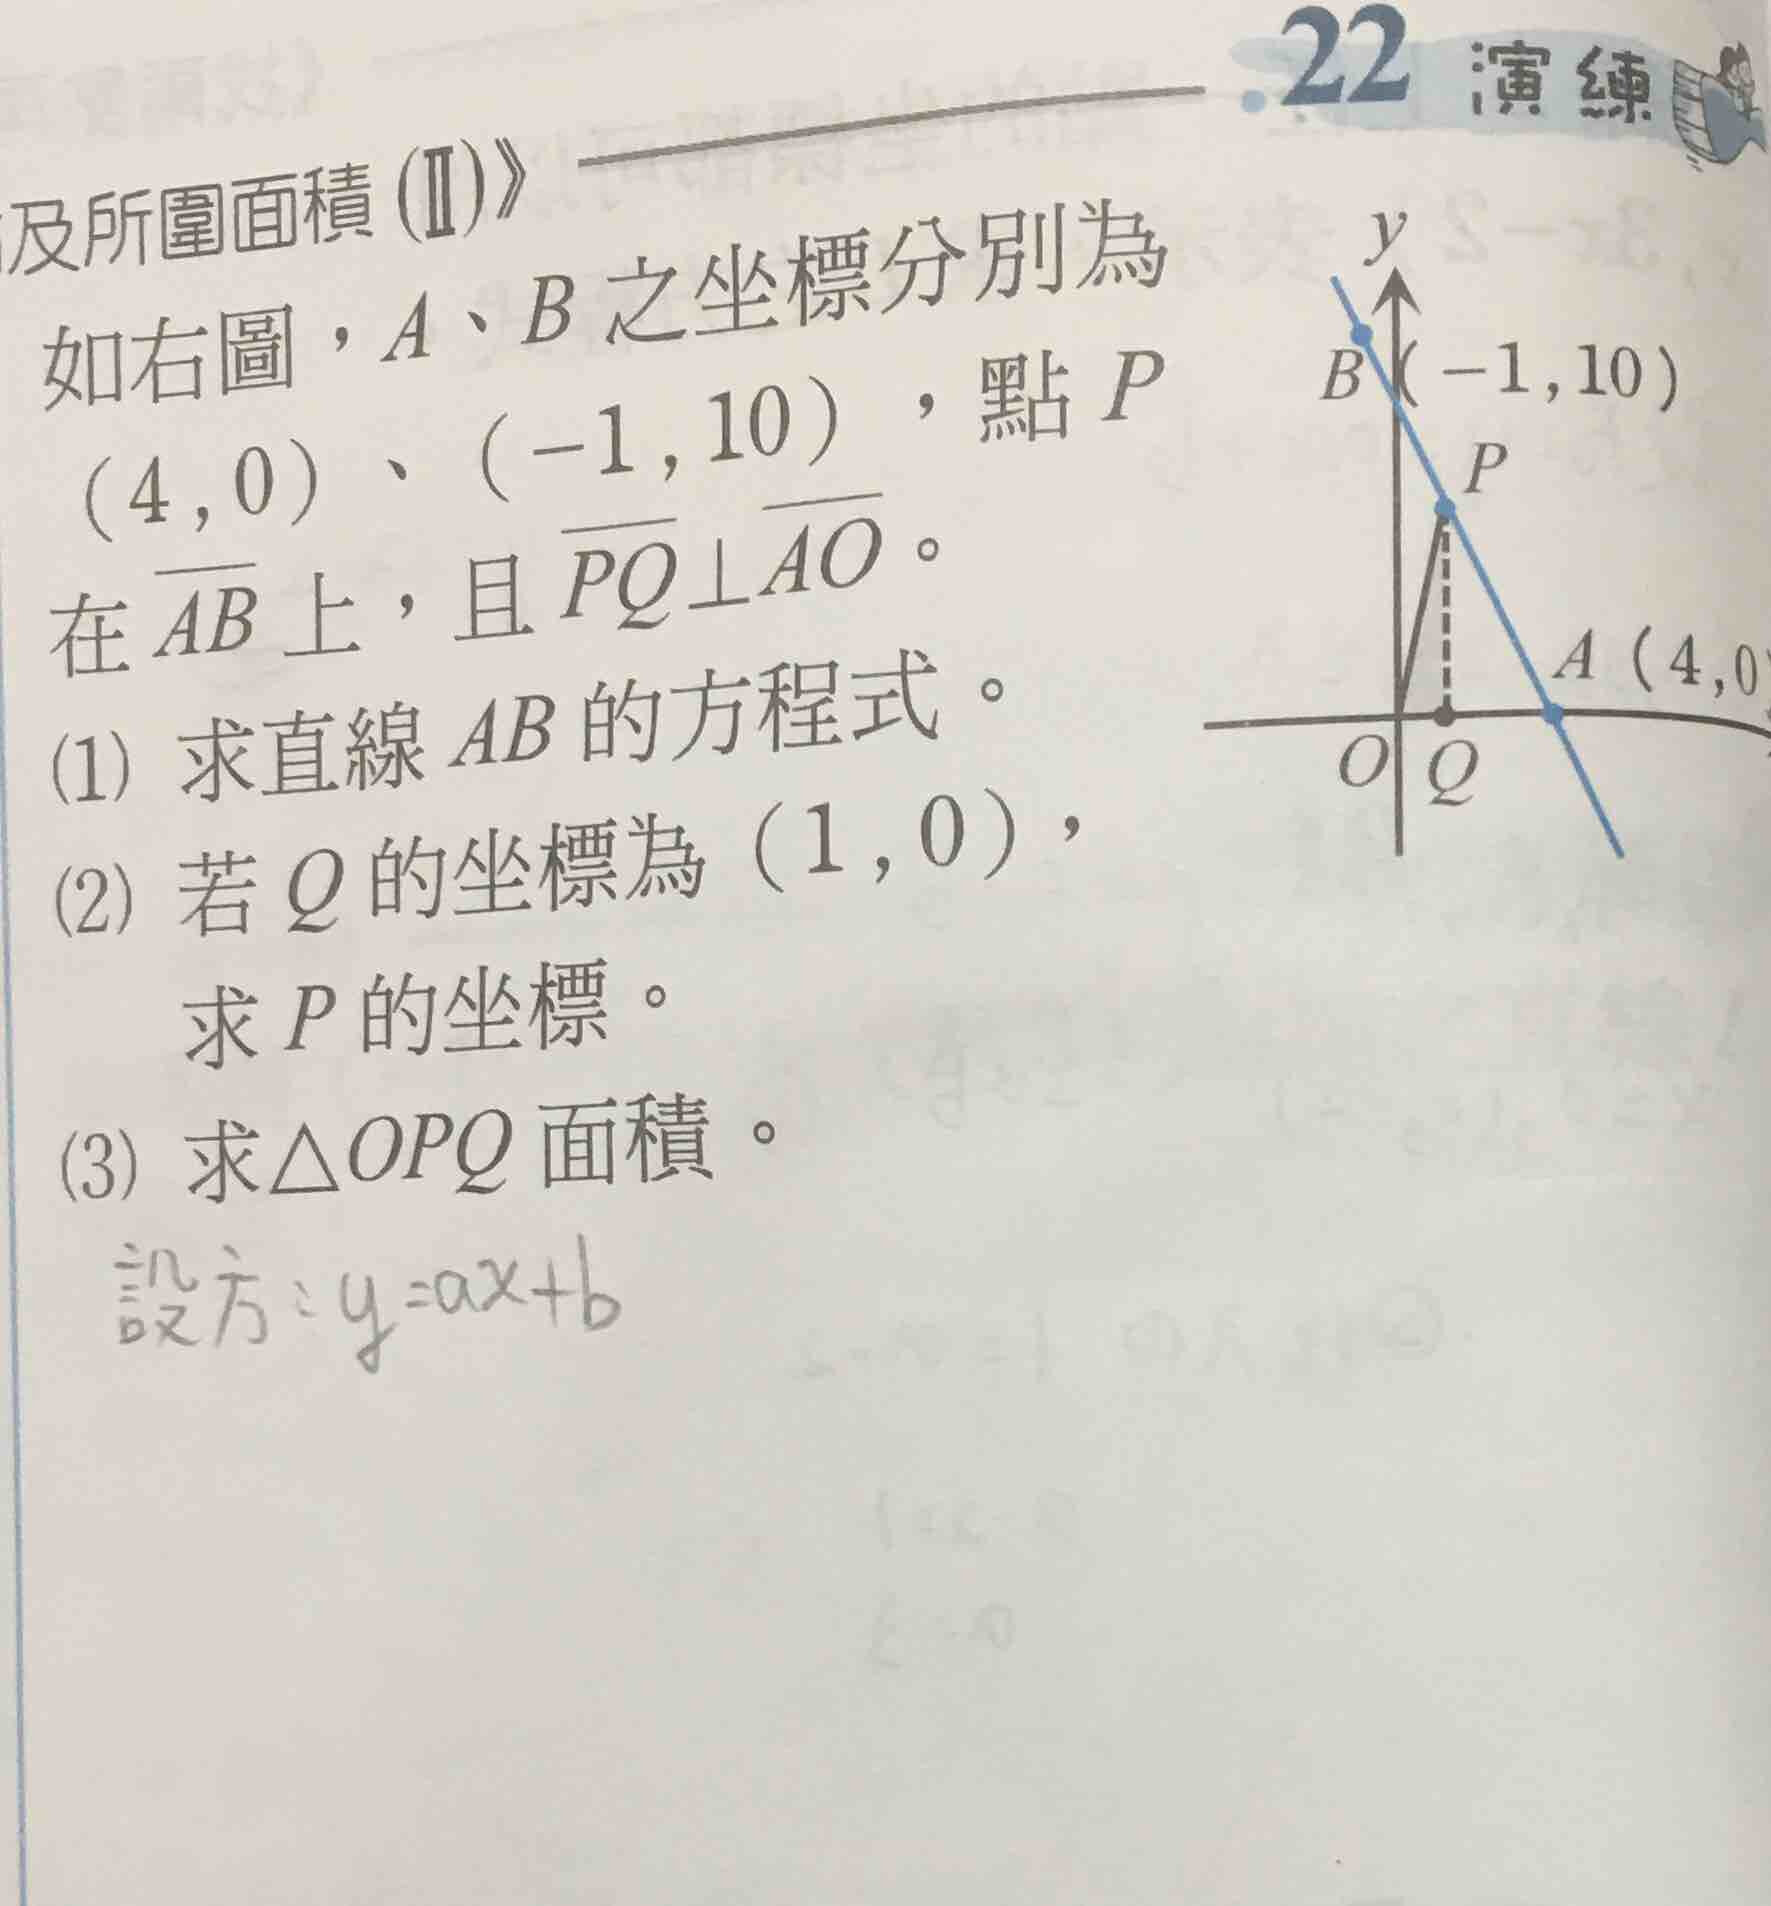 22 演練
及所圍面積(Ⅱ)》
如右圖，A、B之坐標分別為
(4,0)、(-1,10)，點P
在AB上，且PQ⊥AO。
(1) 求直線AB的方程式。
(2) 若Q的坐標為(1,0)，
求P的坐標。
(3) 求△OPQ面積。
設方:y=ax+b
y
B(-1,10)
P
A(4,0
O Q